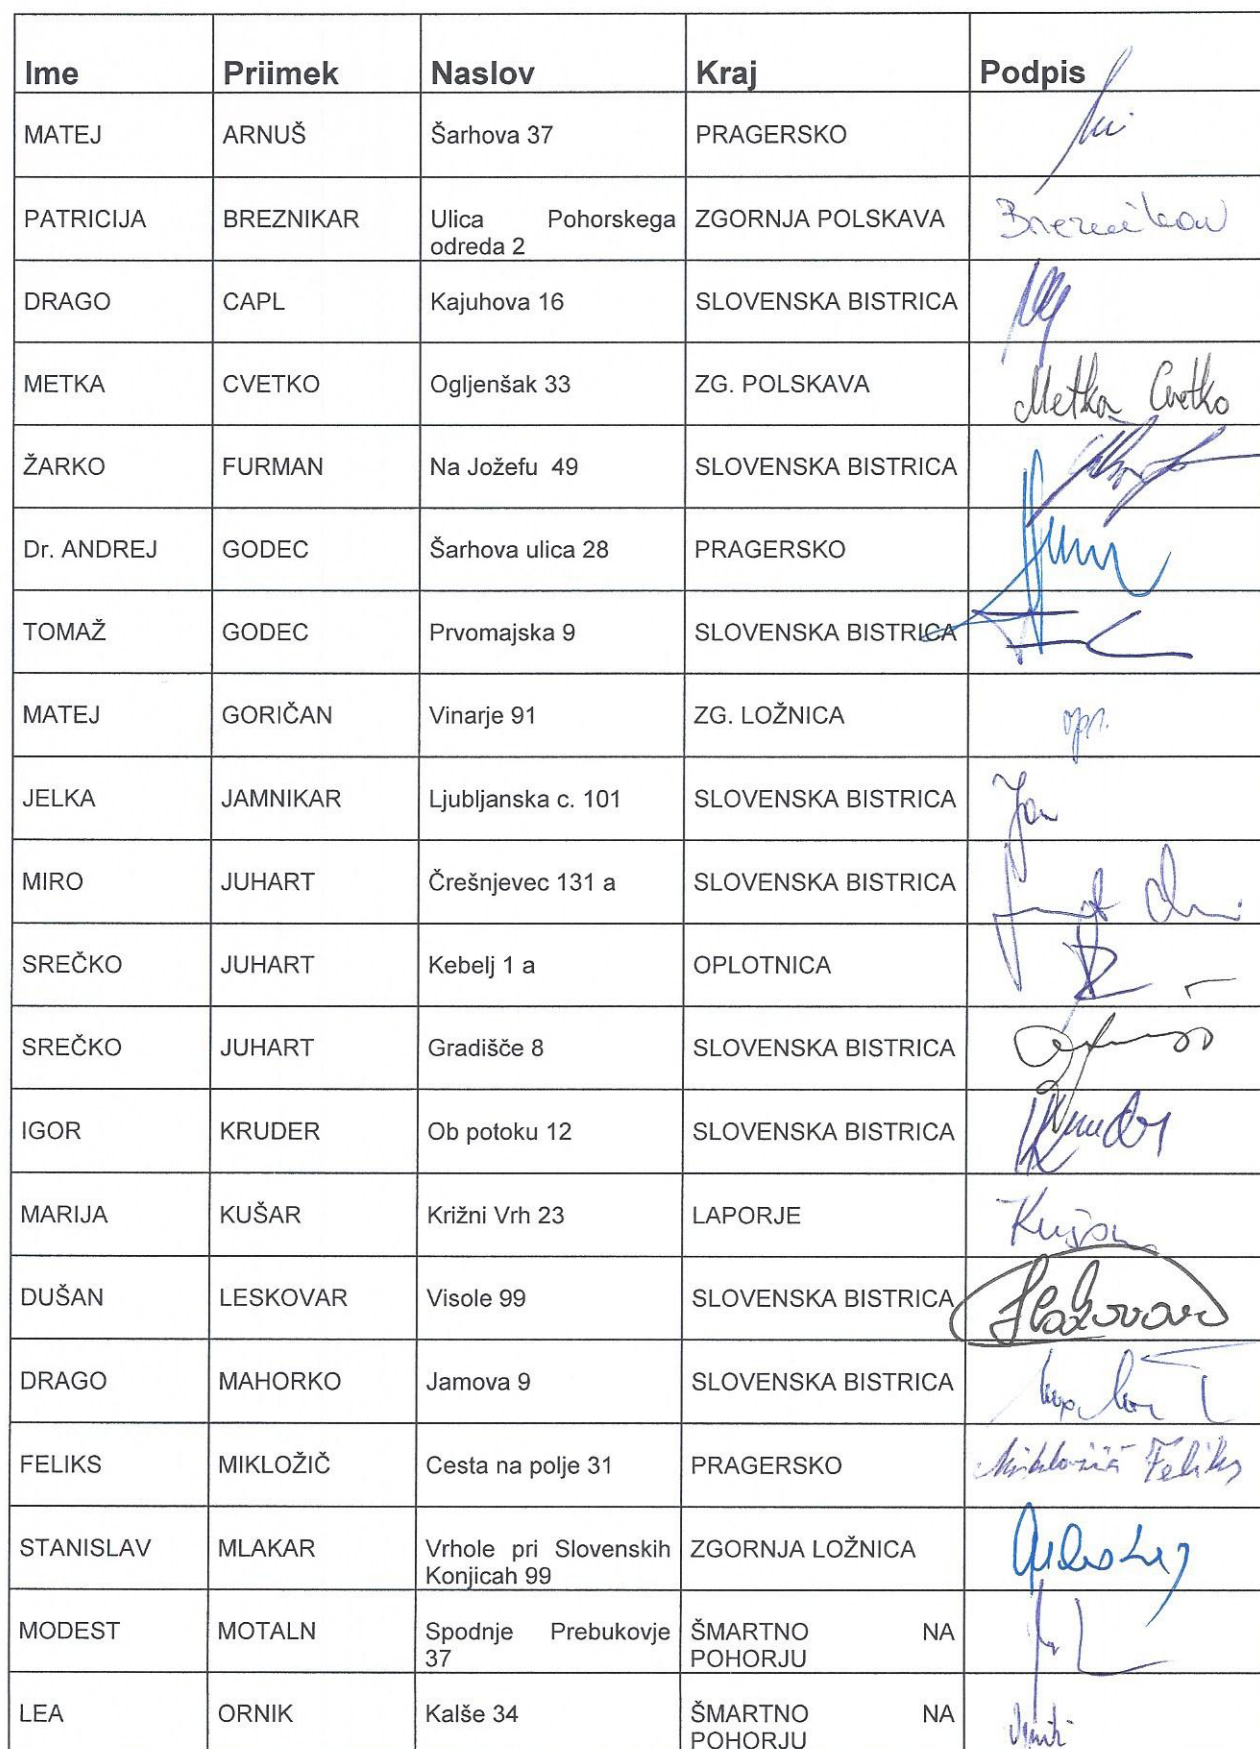 Ime Priimek Naslov Kraj Podpis
MATEJ ARNUŠ Šarhova 37 PRAGERSKO
PATRICIJA BREZNIKAR Ulica Pohorskega ZGORNJA POLSKAVA Breznikar
odreda 2
DRAGO CAPL Kajuhova 16 SLOVENSKA BISTRICA
METKA CVETKO Ogljenšak 33 ZG. POLSKAVA Metka Cvetko
ŽARKO FURMAN Na Jožefu 49 SLOVENSKA BISTRICA
Dr. ANDREJ GODEC Šarhova ulica 28 PRAGERSKO
TOMAŽ GODEC Prvomajska 9 SLOVENSKA BISTRICA
MATEJ GORIČAN Vinarje 91 ZG. LOŽNICA opr.
JELKA JAMNIKAR Ljubljanska c. 101 SLOVENSKA BISTRICA Jam
MIRO JUHART Črešnjevec 131 a SLOVENSKA BISTRICA
SREČKO JUHART Kebelj 1 a OPLOTNICA
SREČKO JUHART Gradišče 8 SLOVENSKA BISTRICA
IGOR KRUDER Ob potoku 12 SLOVENSKA BISTRICA Kruder
MARIJA KUŠAR Križni Vrh 23 LAPORJE Kušar
DUŠAN LESKOVAR Visole 99 SLOVENSKA BISTRICA Leskovar
DRAGO MAHORKO Jamova 9 SLOVENSKA BISTRICA
FELIKS MIKLOŽIČ Cesta na polje 31 PRAGERSKO Mikložič Feliks
STANISLAV MLAKAR Vrhole pri Slovenskih ZGORNJA LOŽNICA
Konjicah 99
MODEST MOTALN Spodnje Prebukovje ŠMARTNO NA
37 POHORJU
LEA ORNIK Kalše 34 ŠMARTNO NA Ornik
POHORJU